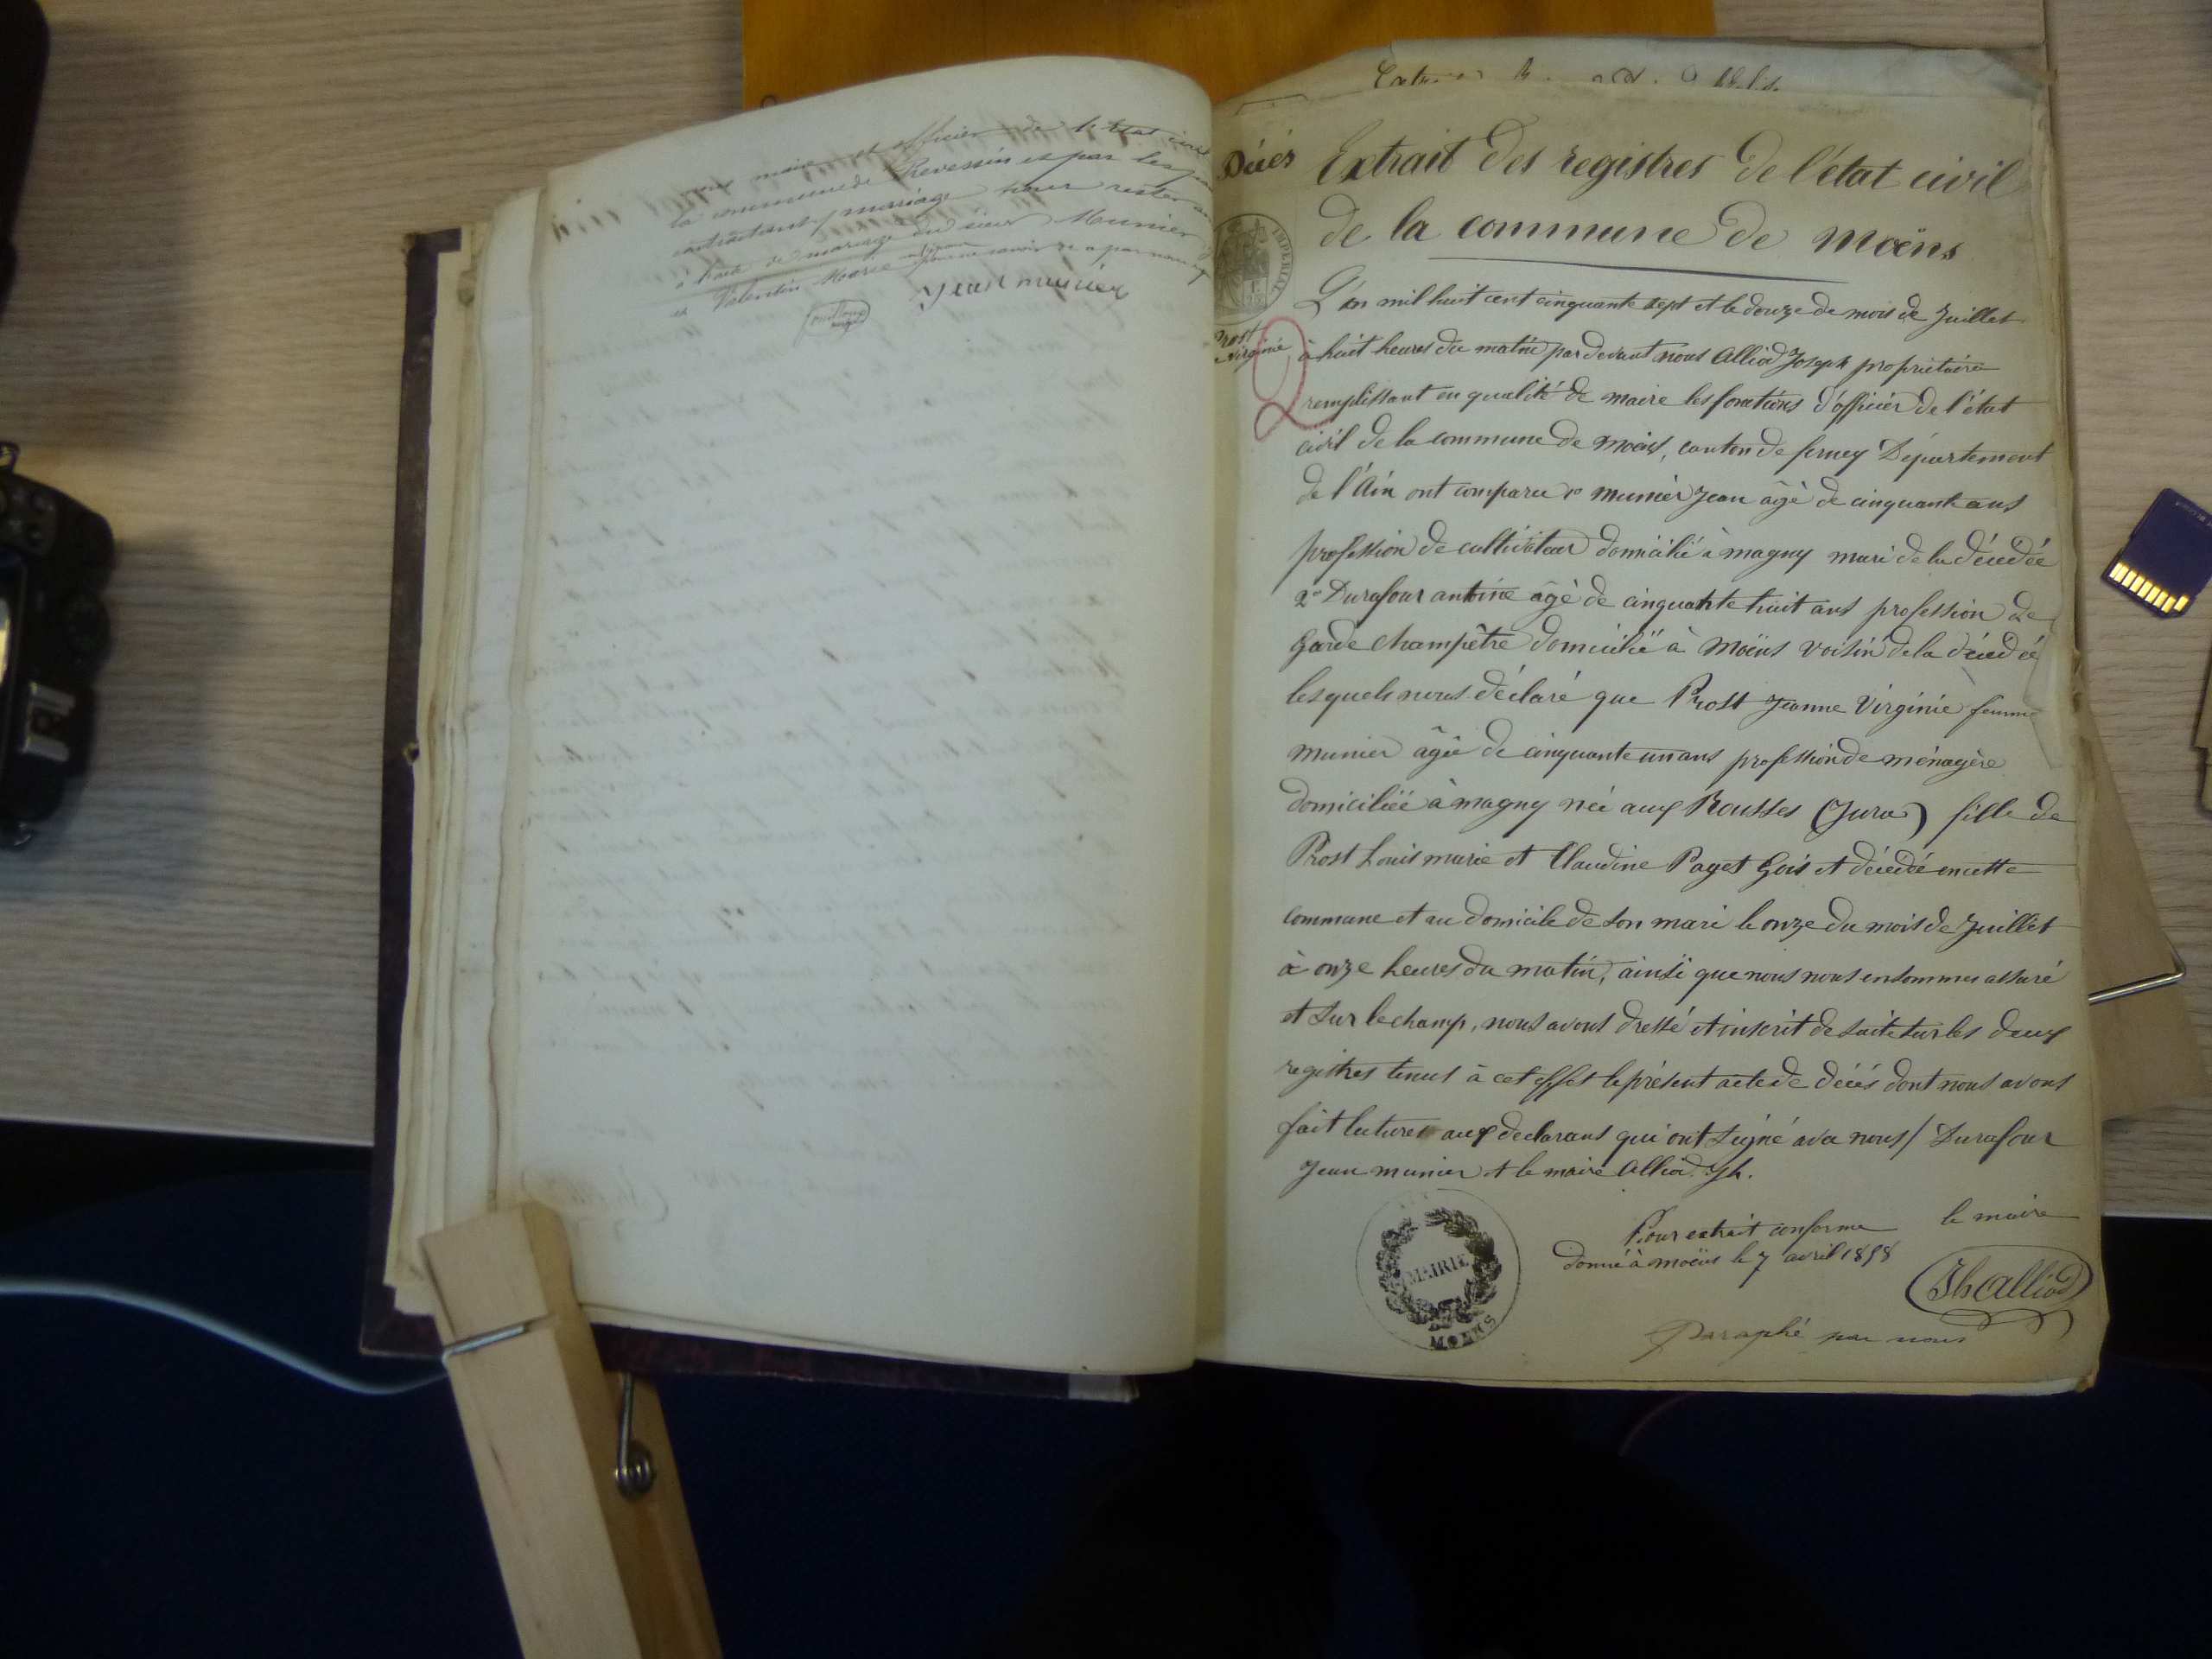 maire et officier de l'état civil
la commune de Chevessin et par les
contractants mariage pour rester
à l'acte de mariage du sieur Munier
et Valentin Marie
Jean munier
Décès
Extrait des registres de l'état civil
de la commune de Moëns
IMPERIAL
Prost
Virginie
L'an mil huit cent cinquante sept et le douze de mois de Juillet
à huit heures du matin par devant nous Alliod Joseph propriétaire
remplissant en qualité de maire les fonctions d'officier de l'état
civil de la commune de Moëns, canton de ferney Département
de l'Ain ont comparu 1º munier Jean âgé de cinquante ans
profession de cultivateur domicilié à magny mari de la décédée
2º Durafour antoine âgé de cinquante huit ans profession de
garde champêtre domicilié à Moëns voisin de la décédé
lesquels nous déclaré que Prost Jeanne Virginie femme
munier âgée de cinquante un ans profession de ménagère
domiciliéé à magny née aux Rousses (Jura) fille de
Prost Louis marie et Claudine Paget Gois et décédé en cette
commune et au domicile de son mari le onze du mois de Juillet
à onze heures du matin, ainsi que nous nous en sommes assuré
et sur le champ, nous avons dressé et inscrit de suite sur les deux
registres tenus à cet effet le présent acte de décés dont nous avons
fait lecture aux declarans qui ont signé avec nous / Durafour
Jean munier et le maire Alliod Jh.
Pour extrait conforme le maire
donné à moëns le 7 avril 1858
Jh Alliod
MAIRIE
DE
MOENS
Paraphé par nous